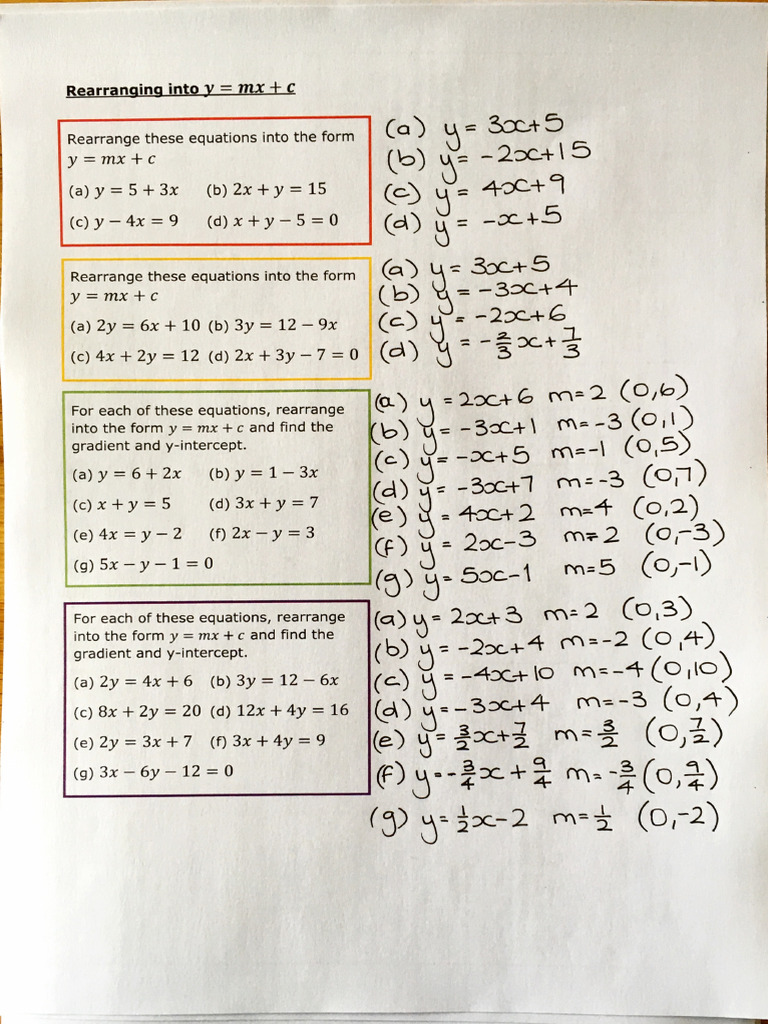 Rearranging into y = mx + c
Rearrange these equations into the form
y = mx + c
(a) y = 5 + 3x (b) 2x + y = 15
(c) y − 4x = 9 (d) x + y − 5 = 0
(a) y = 3x+5
(b) y = -2x+15
(c) y = 4x+9
(d) y = -x+5
Rearrange these equations into the form
y = mx + c
(a) 2y = 6x + 10 (b) 3y = 12 − 9x
(c) 4x + 2y = 12 (d) 2x + 3y − 7 = 0
(a) y = 3x+5
(b) y = -3x+4
(c) y = -2x+6
(d) y = -2/3 x + 7/3
For each of these equations, rearrange
into the form y = mx + c and find the
gradient and y-intercept.
(a) y = 6 + 2x (b) y = 1 − 3x
(c) x + y = 5 (d) 3x + y = 7
(e) 4x = y − 2 (f) 2x − y = 3
(g) 5x − y − 1 = 0
(a) y = 2x+6 m=2 (0,6)
(b) y = -3x+1 m=-3 (0,1)
(c) y = -x+5 m=-1 (0,5)
(d) y = -3x+7 m=-3 (0,7)
(e) y = 4x+2 m=4 (0,2)
(f) y = 2x-3 m=2 (0,-3)
(g) y = 5x-1 m=5 (0,-1)
For each of these equations, rearrange
into the form y = mx + c and find the
gradient and y-intercept.
(a) 2y = 4x + 6 (b) 3y = 12 − 6x
(c) 8x + 2y = 20 (d) 12x + 4y = 16
(e) 2y = 3x + 7 (f) 3x + 4y = 9
(g) 3x − 6y − 12 = 0
(a) y = 2x+3 m=2 (0,3)
(b) y = -2x+4 m=-2 (0,4)
(c) y = -4x+10 m=-4 (0,10)
(d) y = -3x+4 m=-3 (0,4)
(e) y = 3/2 x + 7/2 m = 3/2 (0, 7/2)
(f) y = -3/4 x + 9/4 m = -3/4 (0, 9/4)
(g) y = 1/2 x - 2 m = 1/2 (0,-2)